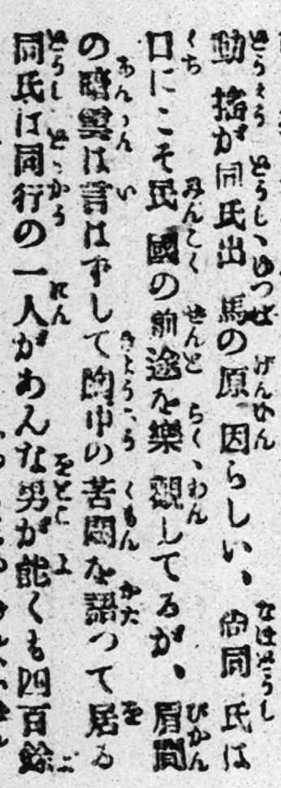 動搖が同氏出馬の原因らしい、尙同氏は
口にこそ民國の前途を樂觀してるが、眉間
の暗雲は言はずして胸中の苦悶を語つて居る
同氏は同行の一人があんな男が能くも四百餘